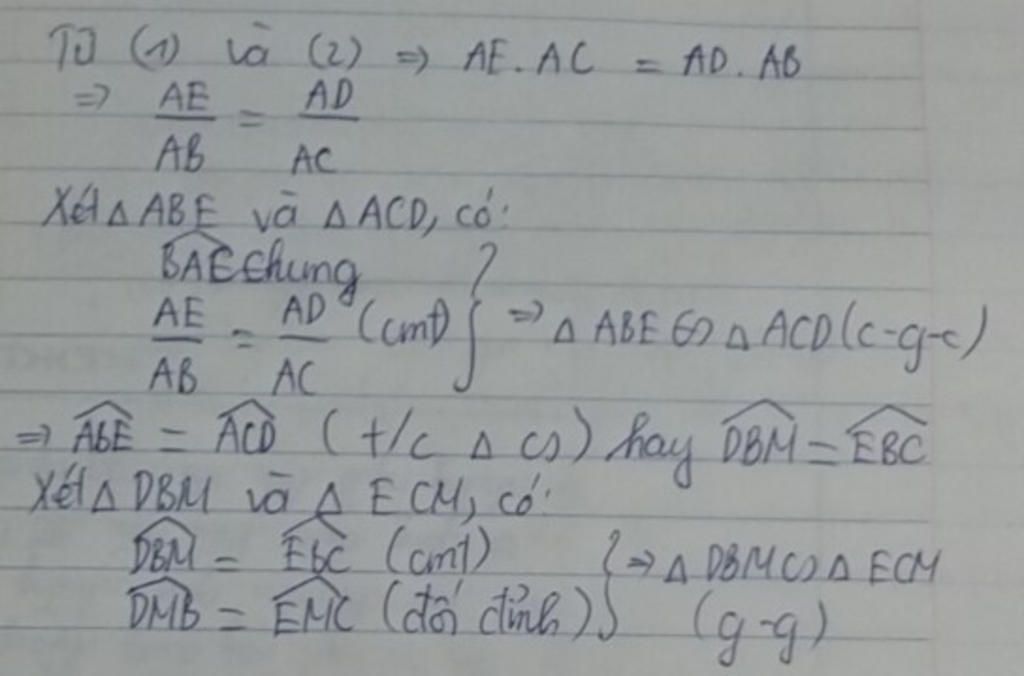 Từ (1) và (2) => AE . AC = AD . AB
=> AE/AB = AD/AC
Xét Δ ABE và Δ ACD, có:
BAE chung
AE/AB = AD/AC (cmt) } => Δ ABE ∽ Δ ACD (c-g-c)
=> ABE = ACD (t/c Δ ∽) hay DBM = EBC
Xét Δ DBM và Δ ECM, có:
DBM = EbC (cmt) } => Δ DBM ∽ Δ ECM
DMB = EMC (đối đỉnh) (g-g)